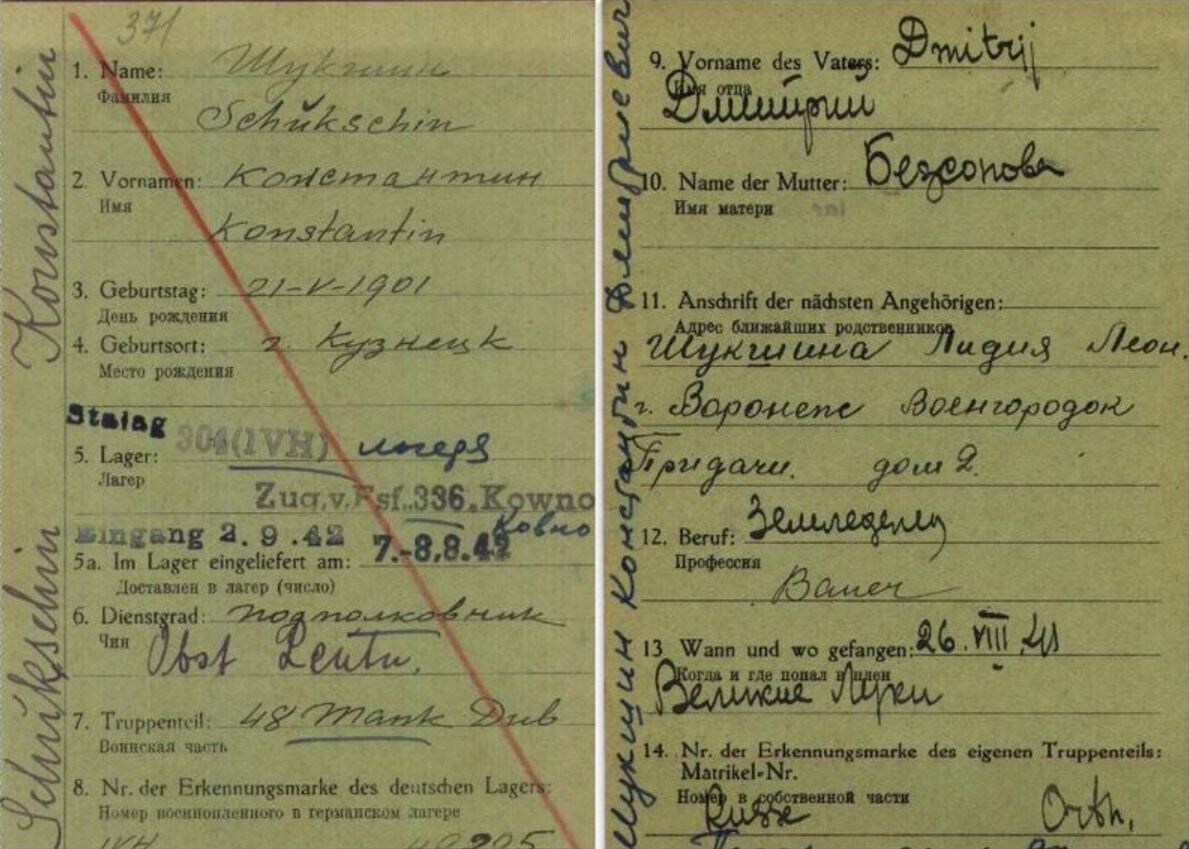 371
1. Name: Шукшин
Фамилия
Schükschin
2. Vornamen: Константин
Имя
Konstantin
3. Geburtstag: 21-V-1901
День рождения
4. Geburtsort: г. Кузнецк
Место рождения
Stalag 304(IVH) лагерь
5. Lager:
Лагер
Zug.v.Fsf.336.Kowno
Ковно
Eingang 2.9.42 7.-8.8.42
5a. Im Lager eingeliefert am:
Доставлен в лагер (число)
6. Dienstgrad: подполковник
Чин
Obst Leutn.
7. Truppenteil: 48 Танк Див
Воинская часть
8. Nr. der Erkennungsmarke des deutschen Lagers:
Номер военнопленного в германском лагере
IVH
Schükschin Konstantin
9. Vorname des Vaters: Dmitrij
Имя отца
Дмитрий
10. Name der Mutter: Безсонова
Имя матери
11. Anschrift der nächsten Angehörigen:
Адрес ближайших родственников
Шукшина Лидия Леон.
г. Воронеж Военгородок
Придачи. дом 2.
12. Beruf: Земледелец
Профессия
Bauer
13 Wann und wo gefangen: 26.VIII.41
Когда и где попал в плен
Великие Луки
14. Nr. der Erkennungsmarke des eigenen Truppenteils:
Matrikel-Nr.
Номер в собственной части
Russe Orth.
Шукшин Константин Дмитриевич